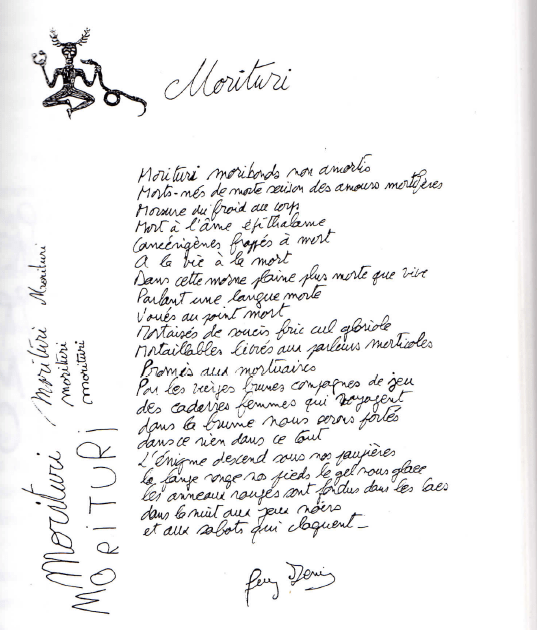 Morituri
Morituri moribonds non amortis
Morts-nés de morte saison des amours mortifères
Morsure du froid au corps
Mort à l'âme épithalame
Cancérigènes frappés à mort
A la vie à la mort
Dans cette morne plaine plus morte que vive
Parlant une langue morte
Voués au point mort
Mortaisés de soucis fric cul gloriole
Mortaillables livrés aux parleurs morticoles
Promis aux mortuaires
Par les vierges brunes compagnes de jeu
des cadavres femmes qui voyagent
dans la brume nous serons fortés
dans ce rien dans ce tout
L'énigme descend sous nos paupières
la fange ronge nos pieds le gel nous glace
les anneaux rouges sont fondus dans les lacs
dans la nuit aux yeux noirs
et aux sabots qui claquent_
Morituri
Morituri
morituri
morituri
Morituri
MORITURI